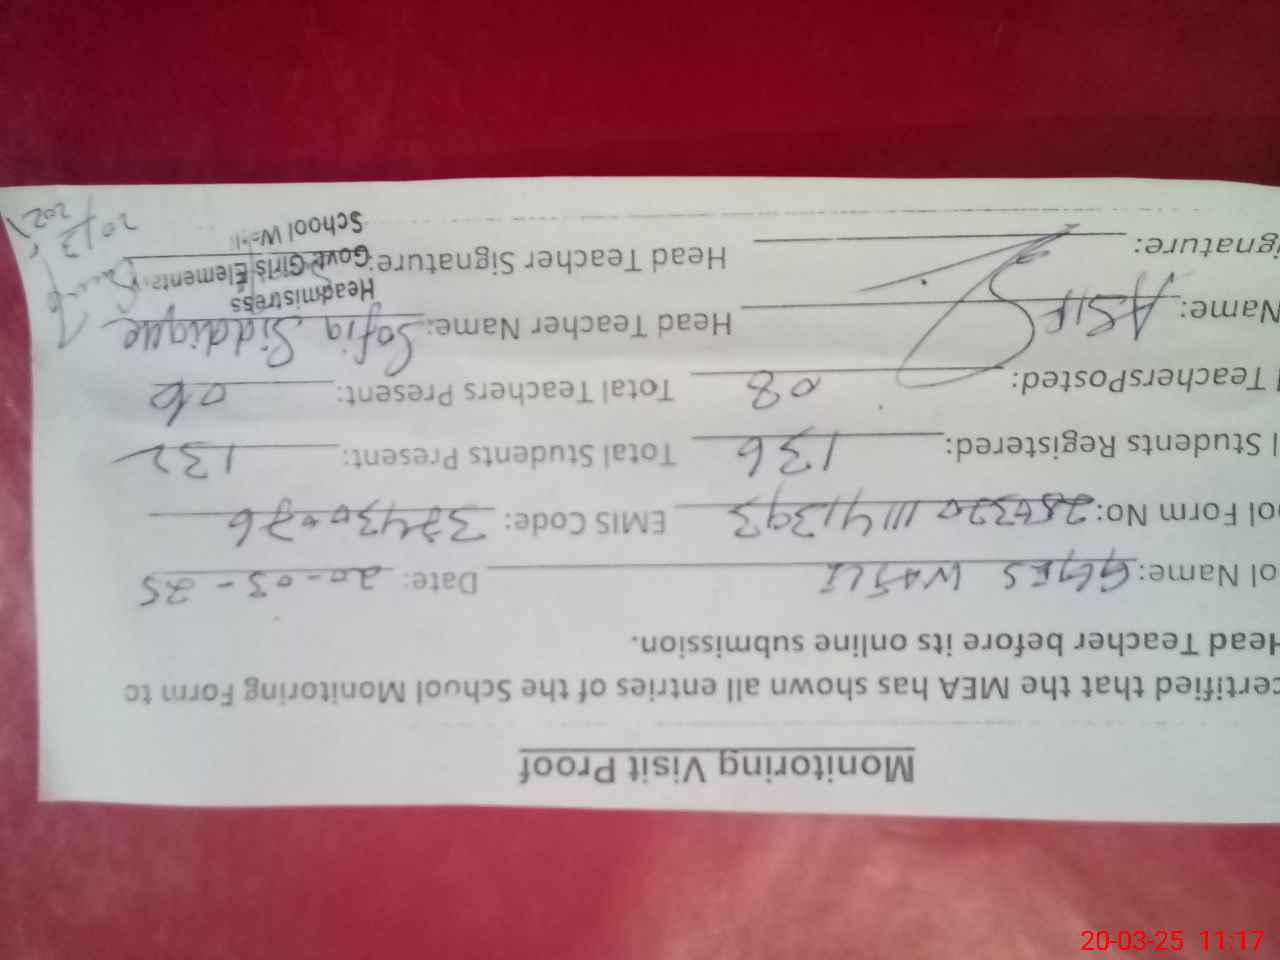 Monitoring Visit Proof
certified that the MEA has shown all entries of the School Monitoring Form to
Head Teacher before its online submission.
ol Name: GGES WASLI Date: 20-03-25
ool Form No: EMIS Code:
l Students Registered: 136 Total Students Present: 132
l TeachersPosted: 08 Total Teachers Present: 06
Name: ASIF Head Teacher Name: Sofia Siddique
ignature: Head Teacher Signature:
Headmistress
Govt: Girls Elementa
School
20/3/202
20-03-25 11:17